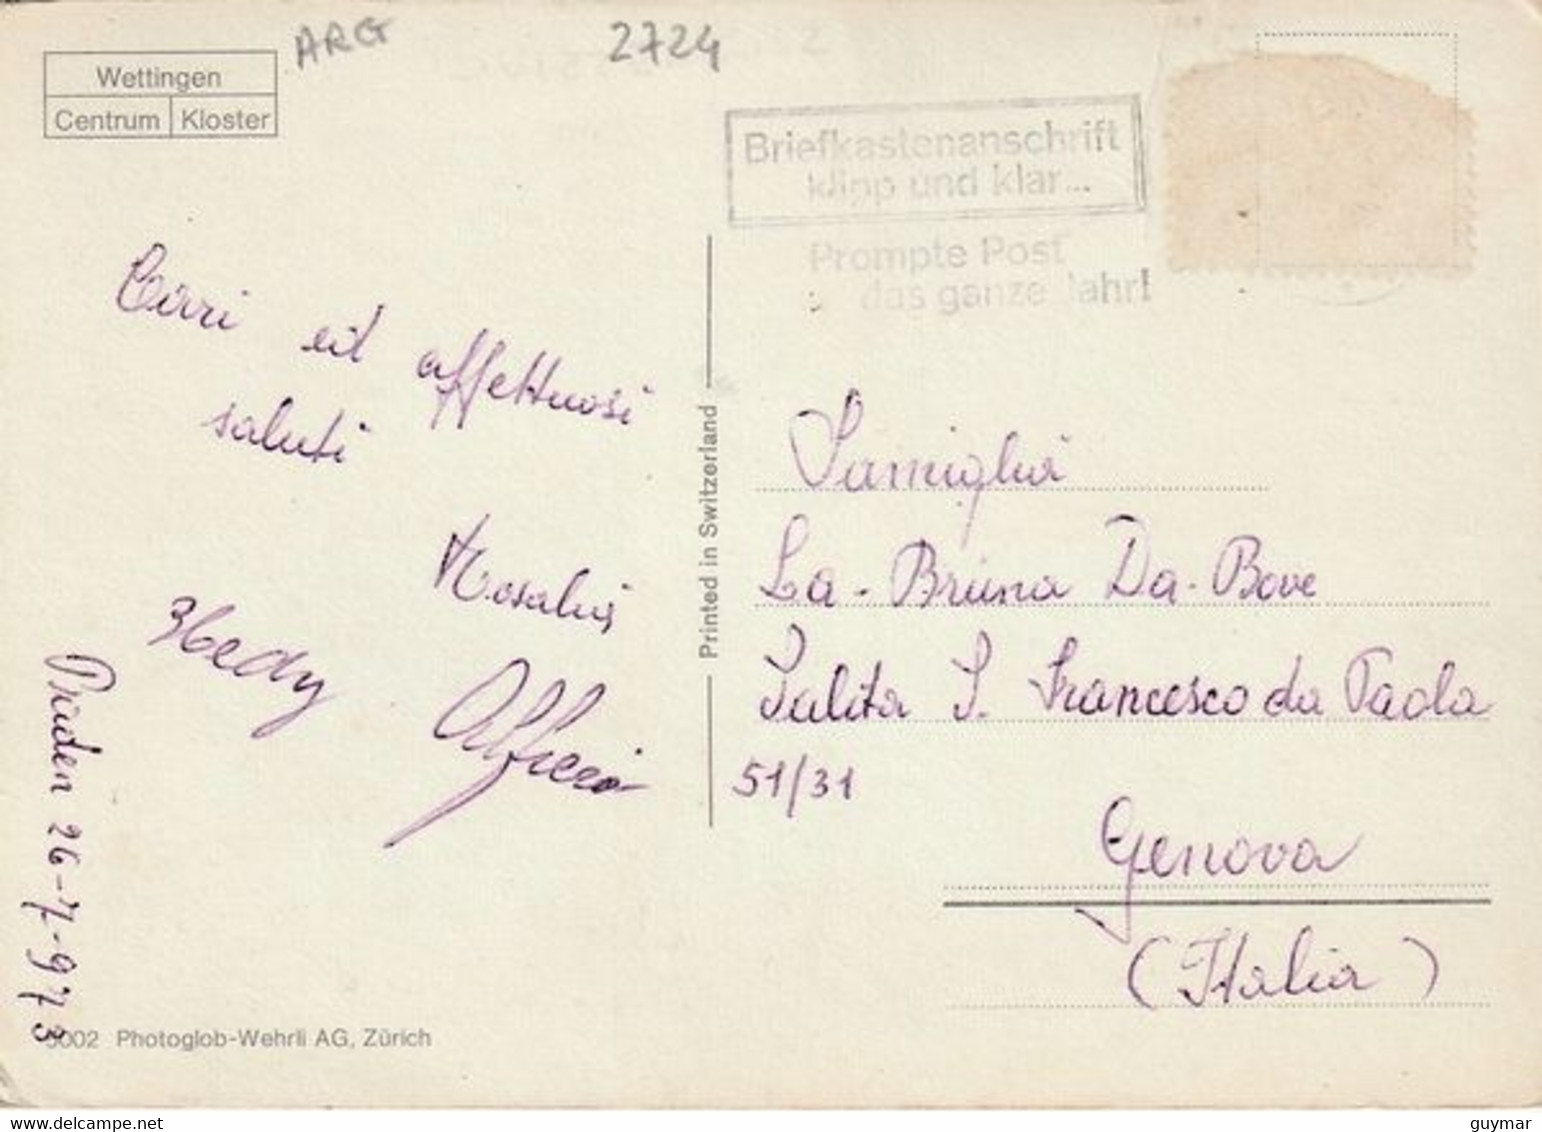 ARG
2724
Wettingen
Centrum Kloster
Briefkastenanschrift
klipp und klar...
Prompte Post
das ganze Jahr!
Carri ed affettuosi
saluti
Rosalia
Hedy
Alfredo
Baden 26-7-973
Printed in Switzerland
Famiglia
La-Bruna Da-Bove
Salita S. Francesco da Paola
51/31
Genova
(Italia)
5002 Photoglob-Wehrli AG, Zürich
delcampe.net
guymar